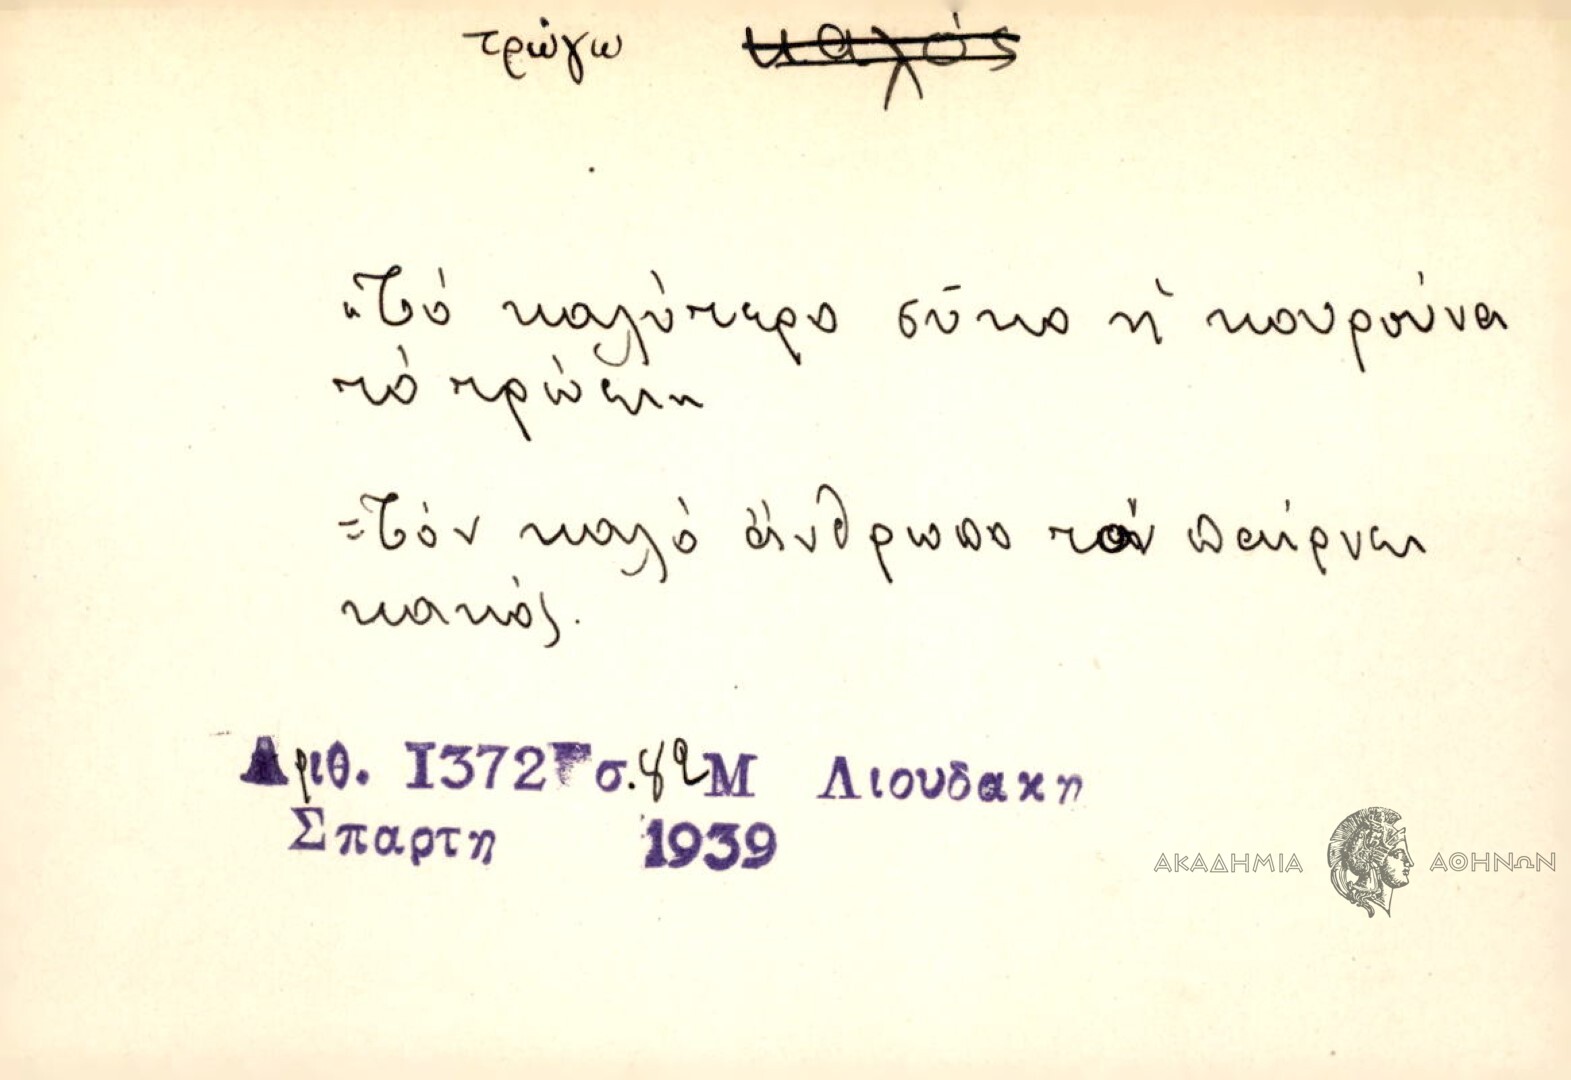 τρώγω καλός
"Τό καλύτερο σῦκο ἡ κουρούνα
τό τρώει"
=Τόν καλό ἄνθρωπο τόν παίρνει
κακός.
Αριθ. 1372 σ. 82 Μ Λιουδακη
Σπαρτη 1939
ΑΚΑΔΗΜΙΑ ΑΘΗΝΩΝ